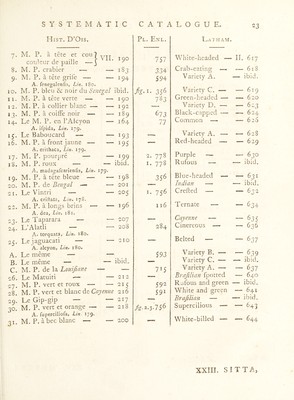 SYSTEMATIC CATALOGUE. 23
HIST. D'OIS. PL. ENL. LATHAM.
7. M. P. à tête et cou couleur de paille — } VII. 190 757 White-headed — II. 617
8. M. P. crabier — — 183 334 Crab-eating — — 618
9. M. P. à tête grise — — 194 594 Variety A. — ibid.
A. senegalensis, Lin. 180.
10. M. P. bleu & noir du Senegal ibid. fig. 1. 356 Variety C. — — 619
11. M. P. à tête verte — — 190 783 Green-headed — — 620
12. M. P. à collier blanc — 192 — Variety D. — — 623
13. M. P. à coiffe noir — 189 673 Black-capped — — 624
14. Le M. P. en l'Alcyon — 164 77 Common — — 626
A. ispida, Lin. 179.
15. Le Baboucard — — 193 — Variety A. — — 628
16. M. P. à front jaune — — 195 — Red-headed — — 629
A. erithaca, Lin. 179.
17. M. P. pourpré — — 199 2. 778 Purple — — 630
18. M. P. roux — — ibid. 1. 778 Rufous — — ibid.
A. madagascariensis, Lin. 179.
19. M. P. à tête bleue — — 198 356 Blue-headed — — 631
20. M. P. de Bengal — — 201 — Indian — — ibid.
21. Le Vintri — — 205 1. 756 Crested — — 632
A. cristata, Lin. 178.
22. M. P. à longs brins — 196 116 Ternate — — 634
A. dea, Lin. 181.
23. Le Taparara — — 207 — Cayenne — — 635
24. L'Alatli — — 208 284 Cinereous — — 636
A. torquata, Lin. 180.
25. Le jaguacati — — 210 — Belted — — 637
A. alcyon, Lin. 180.
A. Le même — — 593 Variety B. — — 639
B. Le même — — ibid. — Variety C. — ibid.
C. M. P. de la Louisiane — — 715 Variety A. — — 637
26. Le Matuiti — — 212 — Brasilian spotted — 640
27. M. P. vert et roux — — 215 592 Rufous and green — ibid.
28. M. P. vert et blanc de Cayenne 216 591 White and green — 641
29. Le Gip-gip — — 217 — Brasilian — — ibid.
30. M. P. vert et orange — — 218 fig. 2.3. 756 Supercilious — — 643
A. superciliosa, Lin. 179.
31. M. P. à bec blanc — — 200 — White-billed — — 644
XXIII. SITTA,